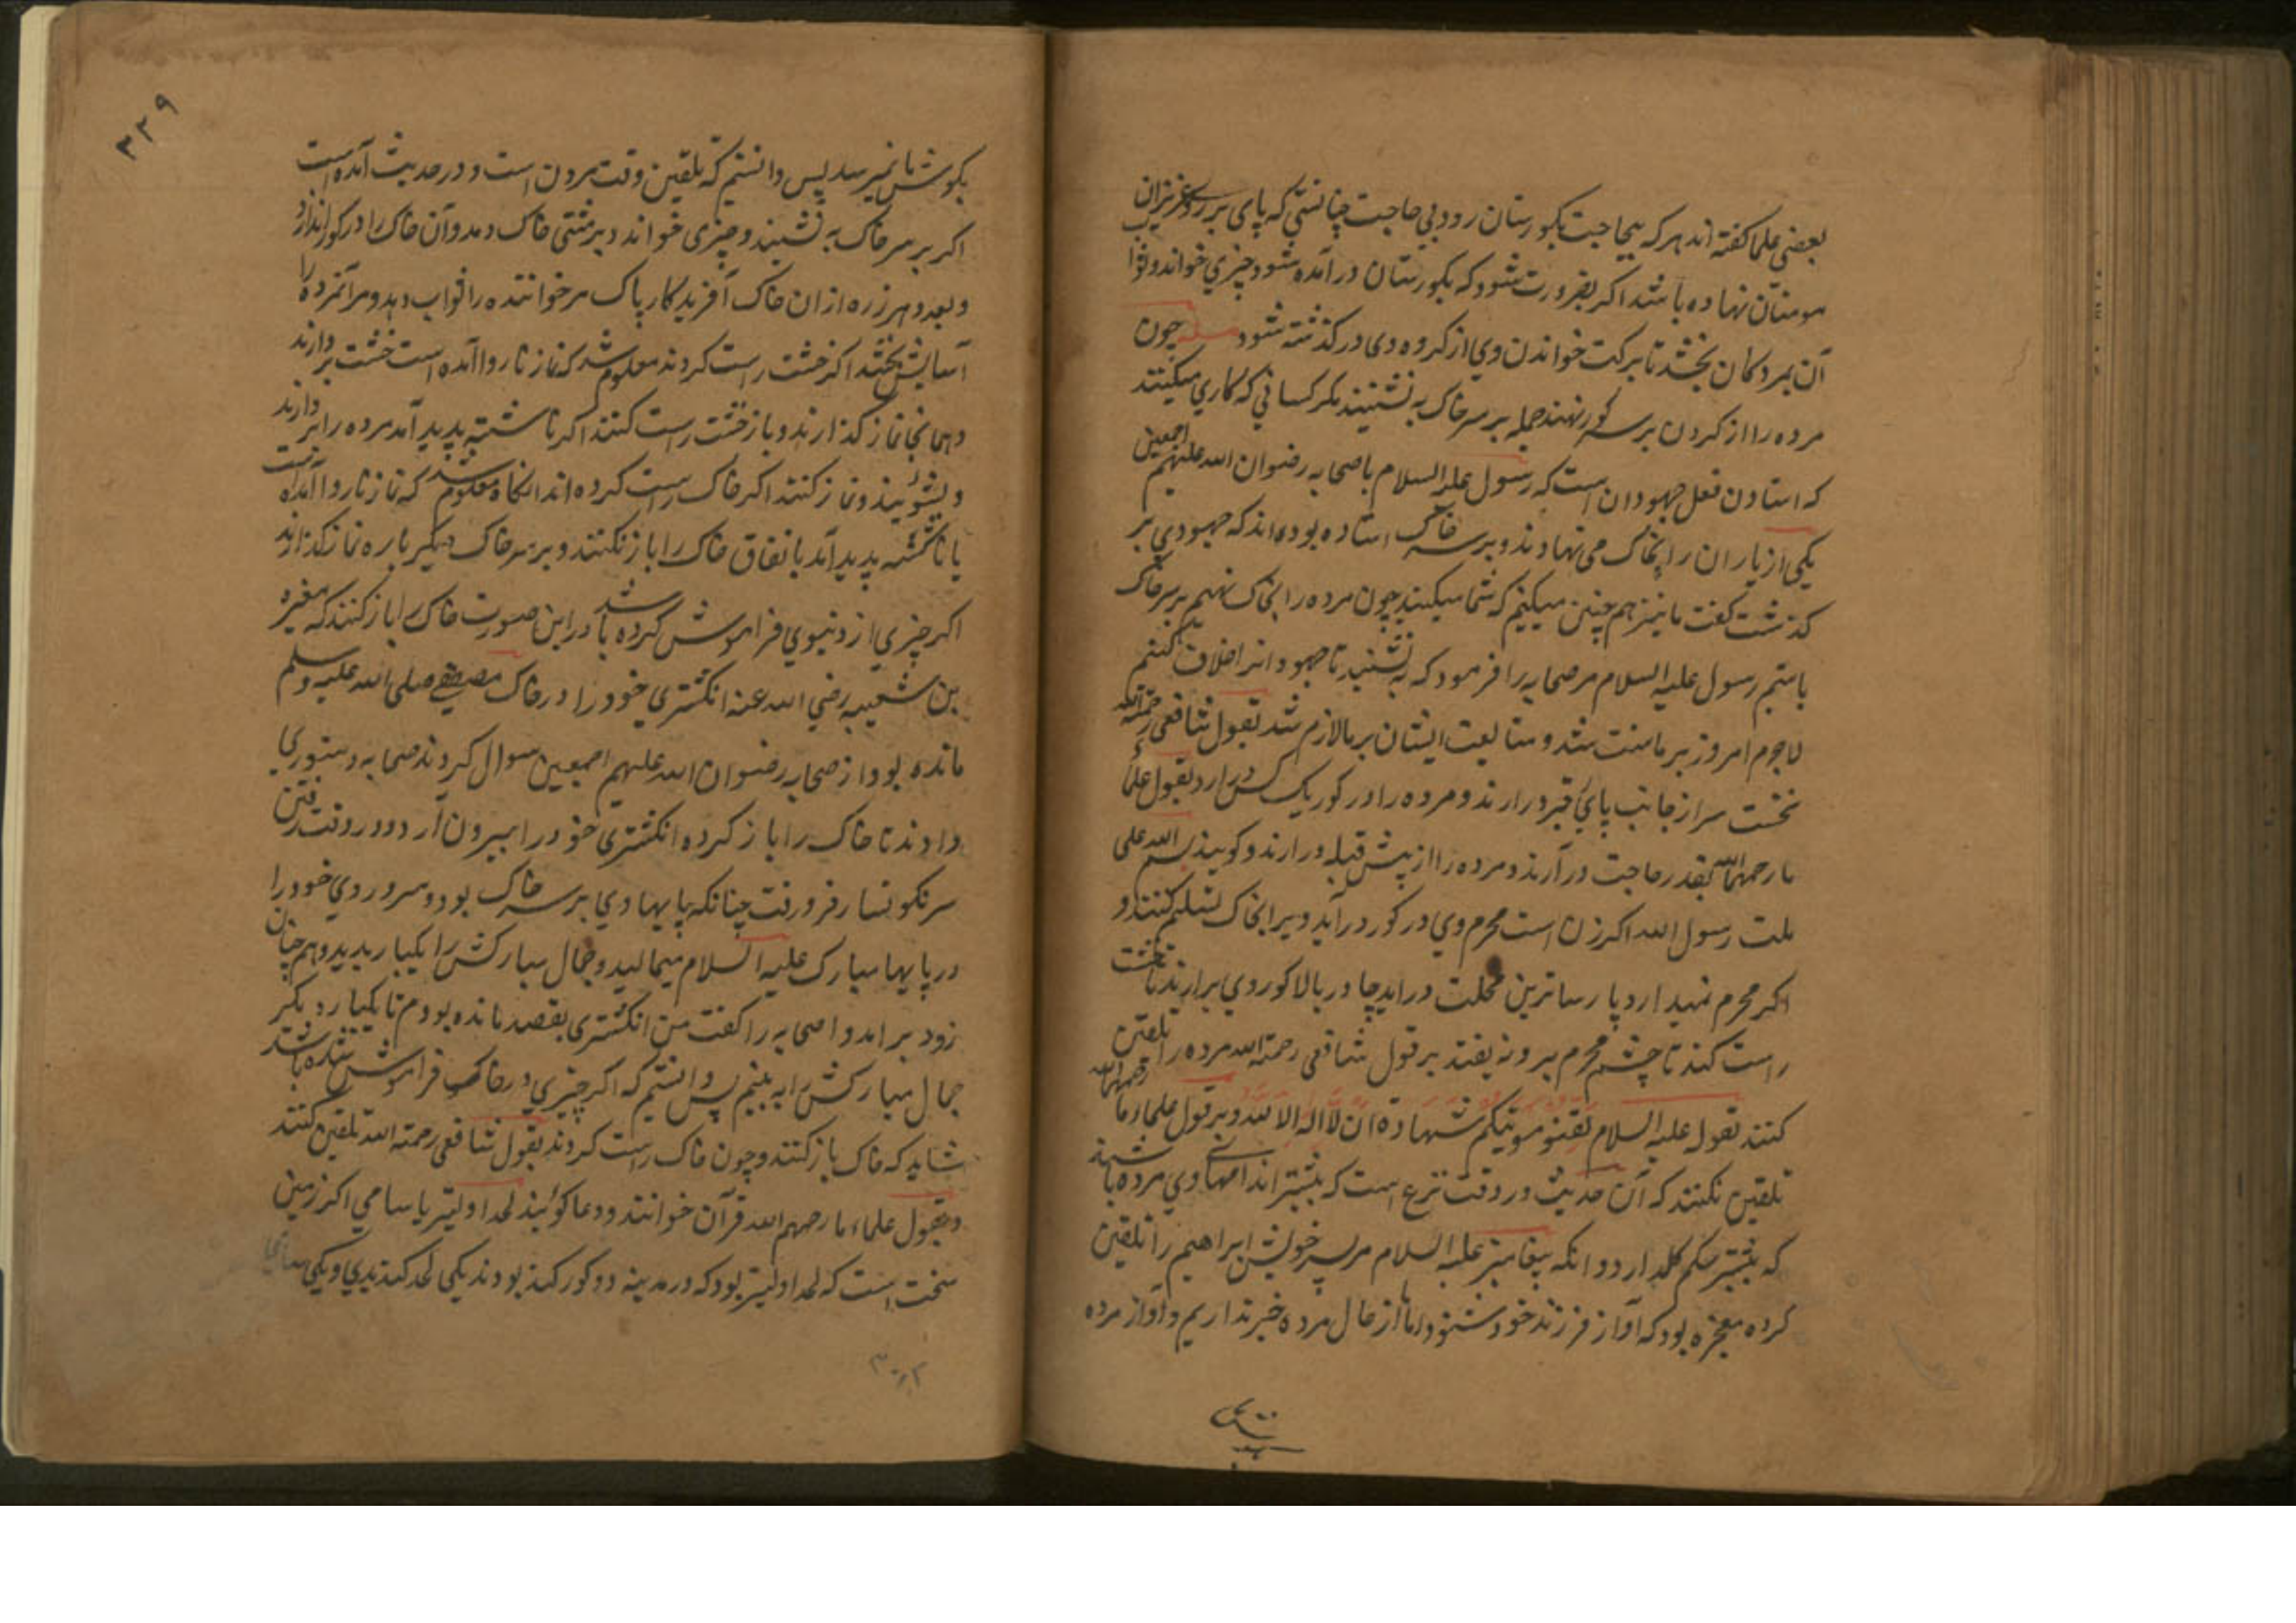 بعضی علما گفته اند هر که بیحاجت بگورستان رود بی حاجت چنانستی که پای بر روی عزیزان
مومنان نهاده باشد اگر بضرورت شود که بگورستان در آمده شود چیزی خواند و ثواب
آن بمردگان بخشد تا ببرکت خواندن وی از کرده وی در گذشته شود مسله چون
مرده را از گردن بر سر گور نهند جمله بر سر خاک به نشینند مگر کسانی که کاری میکنند
که استادن فعل جهودان است که رسول علیه السلام با صحابه رضوان الله علیهم اجمعین
یکی از یاران را بخاک می نهادند و بر سر خاک استاده بوده اند که جهودی بر
گذشت گفت ما نیز هم چنین میکنیم که شما میکنید چون مرده را بخاک نهیم بر سر خاک
باستیم رسول علیه السلام مر صحابه را فرمود که به نشینید تا جهودانرا خلاف کنیم
لاجرم امروز بر ما سنت شد و متابعت ایشان بر ما لازم شد بقول شافعی رحمة الله
نخست سر از جانب پای قبر درارند و مرده را در گور یک کس درارد بقول علماء
ما رحمهم الله بقدر حاجت در آرند و مرده را از پیش قبله درارند و گویند بسم الله علی
ملت رسول الله اگر زن است محرم وی در گور در آید و یرا بخاک تسلیم کنند و
اگر محرم نمیدارد پارساترین محلت دراید چادر بالا گور وی برارند تا خشت
راست کند تا چشم محرم بیرون نیفتد بر قول شافعی رحمة الله مرده را تلقین
کنند بقول علیه السلام لقنو موتیکم شهادة ان لا اله الا الله و بر قول علماء ما رحمهم الله
تلقین نکنند که آن حدیث در وقت نزع است که بیشتر اندامهای وی مرده باشند
که بیشتر حکم کل دارد و انکه پیغامبر علیه السلام مر پسر خویش ابراهیم را تلقین
کرده معجزه بود که آواز فرزند خود شنود اما ما از حال مرده خبر نداریم و آواز مرده
۳۲۹
بگوش ما نمیرسد پس دانستیم که تلقین وقت مردن است و در حدیث آمده است
اگر بر سر خاک به نشیند و چیزی خواند و بر مشتی خاک دمد و آن خاک را در گور اندازد
و بعد و هر زره ازان خاک آفریدگار پاک مر خواننده را ثواب دهد و مر آنمرده را
آسایش بخشد اگر خشت راست کردند معلوم شد که نماز ناروا آمده است خشت بردارند
و همانجا نماز گذارند و باز خشت راست کنند اگر ناشسته پدید آمد مرده را بردارند
و بشویند و نماز کنند اگر خاک راست کرده اند انگاه معلوم شد که نماز ناروا آمده است
یا ناشسته پدید آمد باتفاق خاک را باز نکنند و بر سر خاک دیگر باره نماز گذارند
اگر چیزی از دنیوی فراموش کرده باشد در این صورت خاک را باز کنند که مغیره
بن شعیبه رضی الله عنه انگشتری خود را در خاک مصطفی صلی الله علیه وسلم
مانده بود و از صحابه رضوان الله علیهم اجمعین سوال کردند صحابه دستوری
دادند تا خاک را باز کرده انگشتری خود را بیرون آرد و در وقت رفتن
سرنگونسار فرو رفت چنانکه پایها وی بر سر خاک بود و سر و روی خود را
در پایها مبارک علیه السلام میمالید و جمال مبارکش را یکبار بدید و هم چنان
زود بر امد و اصحابه را گفت من انگشتری بقصد مانده بودم تا یکبار دیگر
جمال مبارکش را به بینم پس دانستیم که اگر چیزی در خاک فراموش شده باشد
شاید که خاک باز کنند و چون خاک راست کردند بقول شافعی رحمة الله تلقین کنند
و بقول علماء ما رحمهم الله قرآن خوانند و دعا گویند لحد اولیتر یا سامی اگر زمین
سخت است که لحد اولیتر بود که در مدینه دو گورکند بودند یکی لحد کندیدی و یکی